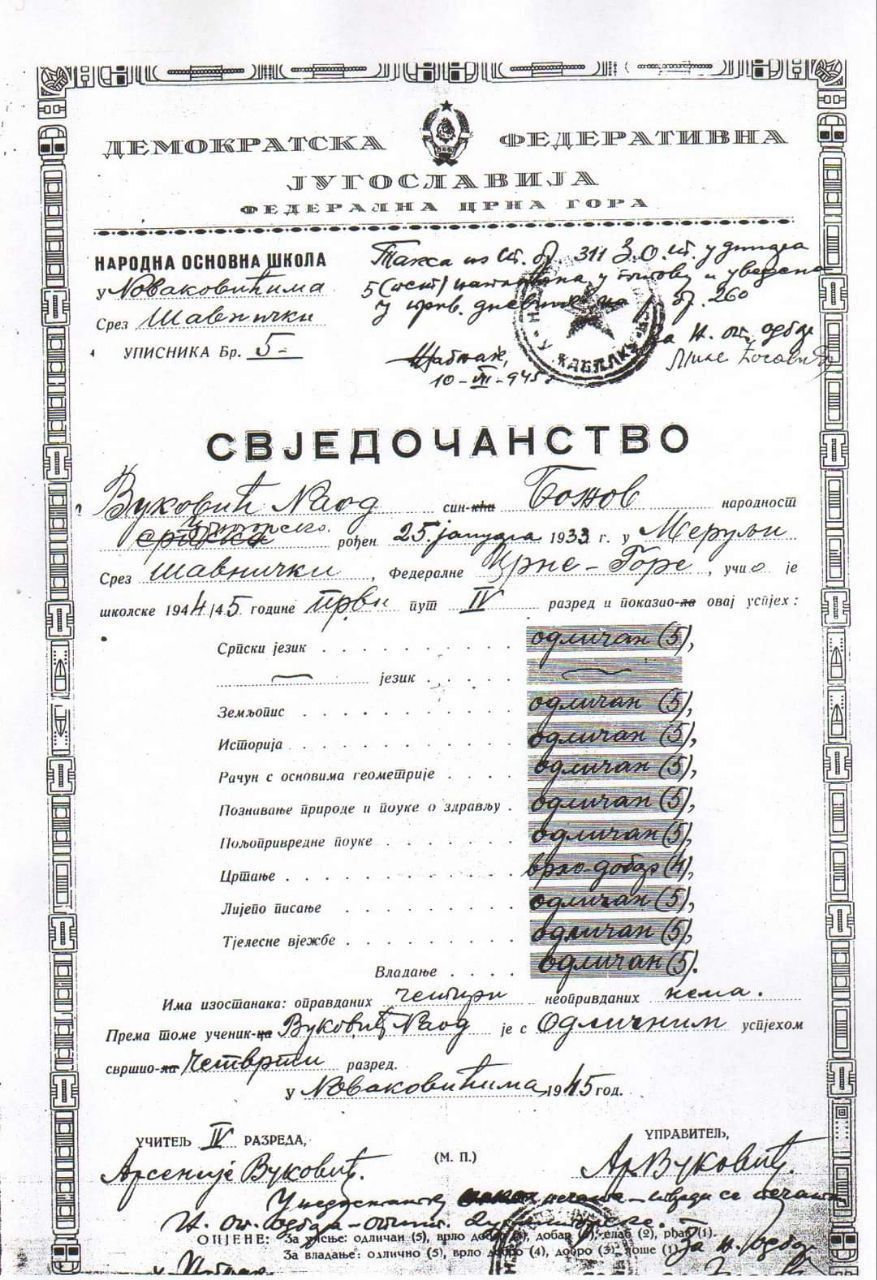 ДЕМОКРАТСКА ФЕДЕРАТИВНА
ЈУГОСЛАВИЈА
ФЕДЕРАЛНА ЦРНА ГОРА
НАРОДНА ОСНОВНА ШКОЛА
у Новаковићима
Срез Шавнички
УПИСНИКА Бр. 5-
Такса из 311 у
5 и уведена
у дневник 260
10-VII-945
СВЈЕДОЧАНСТВО
Вуковић син-кћи Божов народност
српска рођен 25. јануара 1933 г. у Меруљи
Срез Шавнички, Федералне Црне-Горе, учио је
школске 1944/45 године први пут IV разред и показао-ла овај успјех:
Српски језик одличан (5),
језик
Земљопис одличан (5),
Историја одличан (5),
Рачун с основима геометрије одличан (5),
Познавање природе и поуке о здрављу одличан (5),
Пољопривредне поуке одличан (5),
Цртање врло добар (4),
Лијепо писање одличан (5),
Тјелесне вјежбе одличан (5),
Владање одличан (5).
Има изостанака: оправданих четири неоправданих нема.
Према томе ученик-ца Вуковић је с Одличним успјехом
свршио-ла Четврти разред.
у Новаковићима, 1945 год.
УЧИТЕЉ IV РАЗРЕДА,
УПРАВИТЕЉ,
(М. П.)
Арсеније Вуковић.
Ар Вуковић.
У недостатку
ОЦЈЕНЕ: За одличан (5), врло добар добар слаб (2), рђав (1).
За владање: одлично (5), врло добро (4), добро (3), лоше (1)